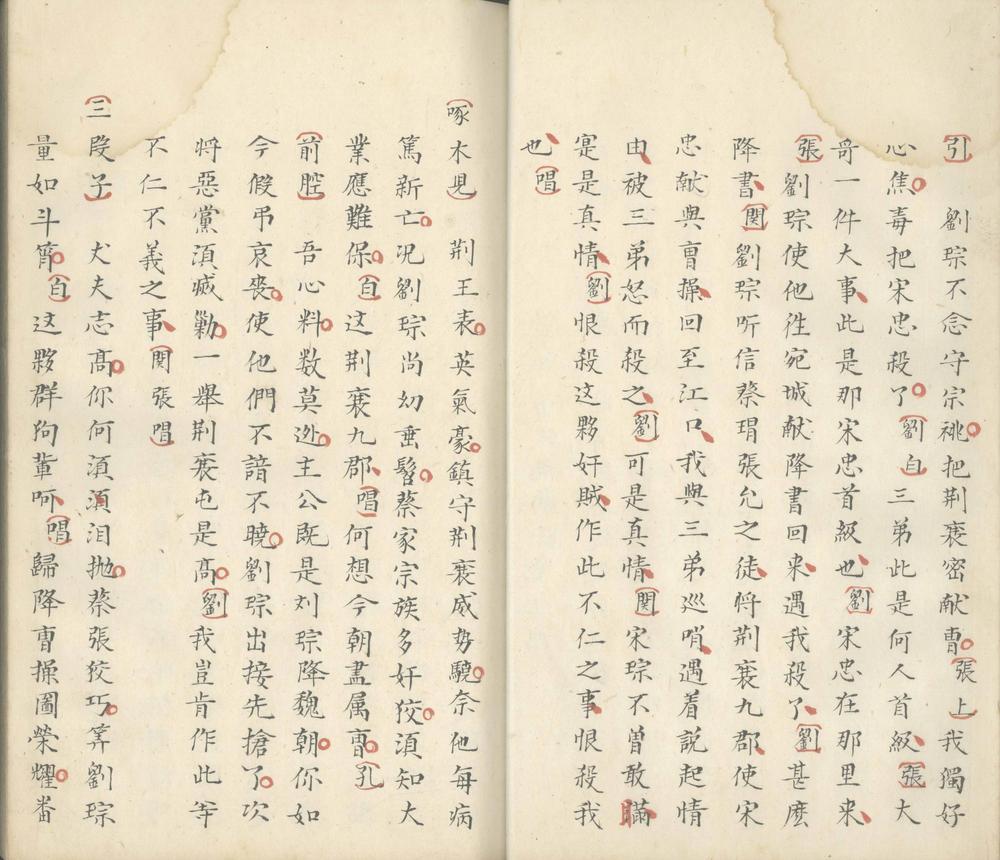 引 劉琮不念守宗祧把荆襄密献曹張上我獨好
心焦毒把宋忠殺了劉白三弟此是何人首級張大
哥一件大事此是那宋忠首級也劉宋忠在那里来
張劉琮使他徃宛城献降書回来遇我殺了劉甚麽
降書関劉琮听信蔡瑁張允之徒将荆襄九郡使宋
忠献與曹操回至江口我與三弟巡哨遇着説起情
由被三弟怒而殺之劉可是真情関宋琮不曽敢瞞
寔是真情劉恨殺这夥奸賊作此不仁之事恨殺我
也唱
啄木児 荆王表英氣豪鎮守荆襄威势驍奈他每病
篤新亡况劉琮尚幼垂髫蔡家宗族多奸狡須知大
業應難保白这荆襄九郡唱何想今朝盡属曹孔
前腔 吾心料数莫迯主公既是刘琮降魏朝你如
今假弔哀喪使他們不諳不曉劉琮出接先搶了次
将惡黨須㓕勦一舉荆襄屯是髙劉我豈肯作此等
不仁不義之事関張唱
三段子 犬夫志髙你何須須泪抛蔡張狡巧筭劉琮
量如斗筲白这夥群狗軰呵唱歸降曹操圖榮耀畨